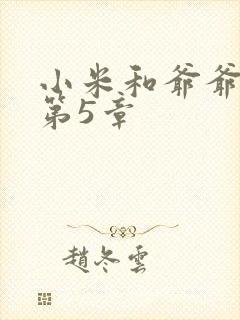 小米和爷爷
第5章
趙冬雲